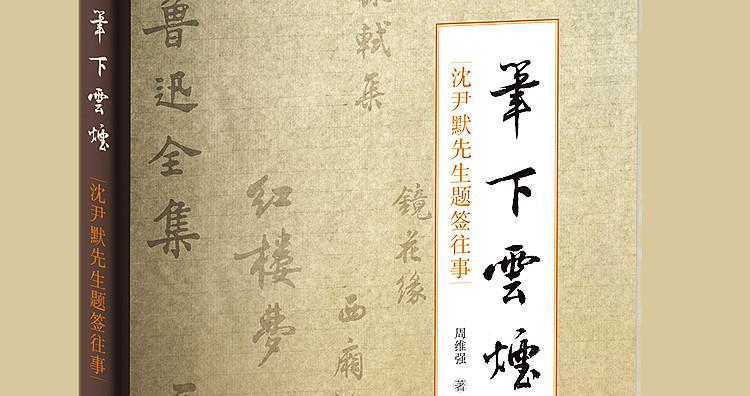 筆下雲煙
沈尹默先生题签往事
周维强 著
筆下雲煙
沈尹默先生题签往事
軾集
鏡花缘
西廂
红樓夢
鲁迅全集